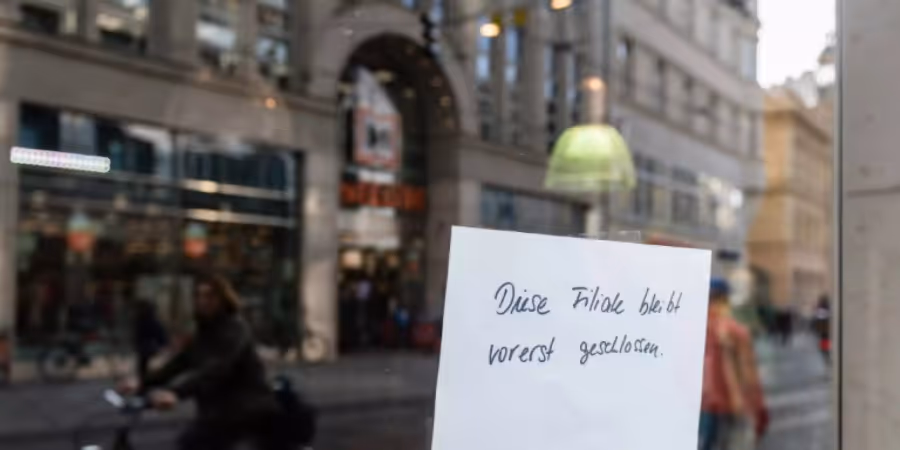 Diese Filiale bleibt
vorerst geschlossen.